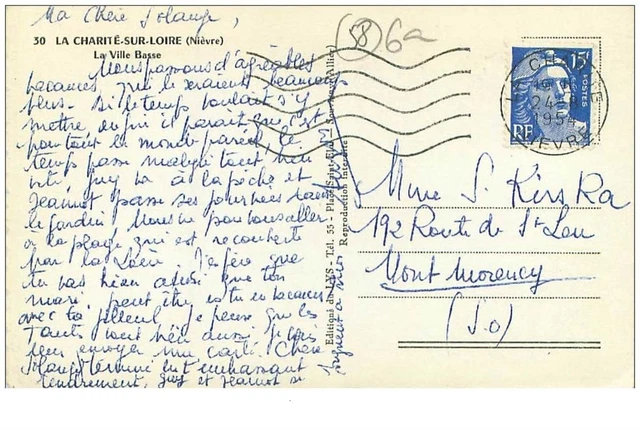 Ma Chère Solange,
30 LA CHARITÉ-SUR-LOIRE (Nièvre)
La Ville Basse
Nous passons d'agréables
vacances, qui le seraient beaucoup
plus si le temps voulait s'y
mettre, enfin il parait que c'est
partout le monde pareil, le
temps passe malgré tout bien
vite, Guy va à la pêche et
Jeannot passe ses journées dans
le jardin. Nous ne pouvons aller
à la plage qui est recouverte
par la Loire. J'espère que
tu vas bien ainsi que ton
mari, peut être es tu en vacances
avec ta filleul je pense que les
Tantes vont bien aussi je vais
leur envoyer une carte. Chère
Solange termine en t'embrassant
tendrement, Guy et Jeannot se
joignent à moi
Editions du LYS - Tél. 55 - Place
Reproduction Interdite
58 6a
15F
POSTES
RF
24-8
1954
NIEVRE
Mme S. Kirska
192 Route de St Leu
Montmorency
(S.O)